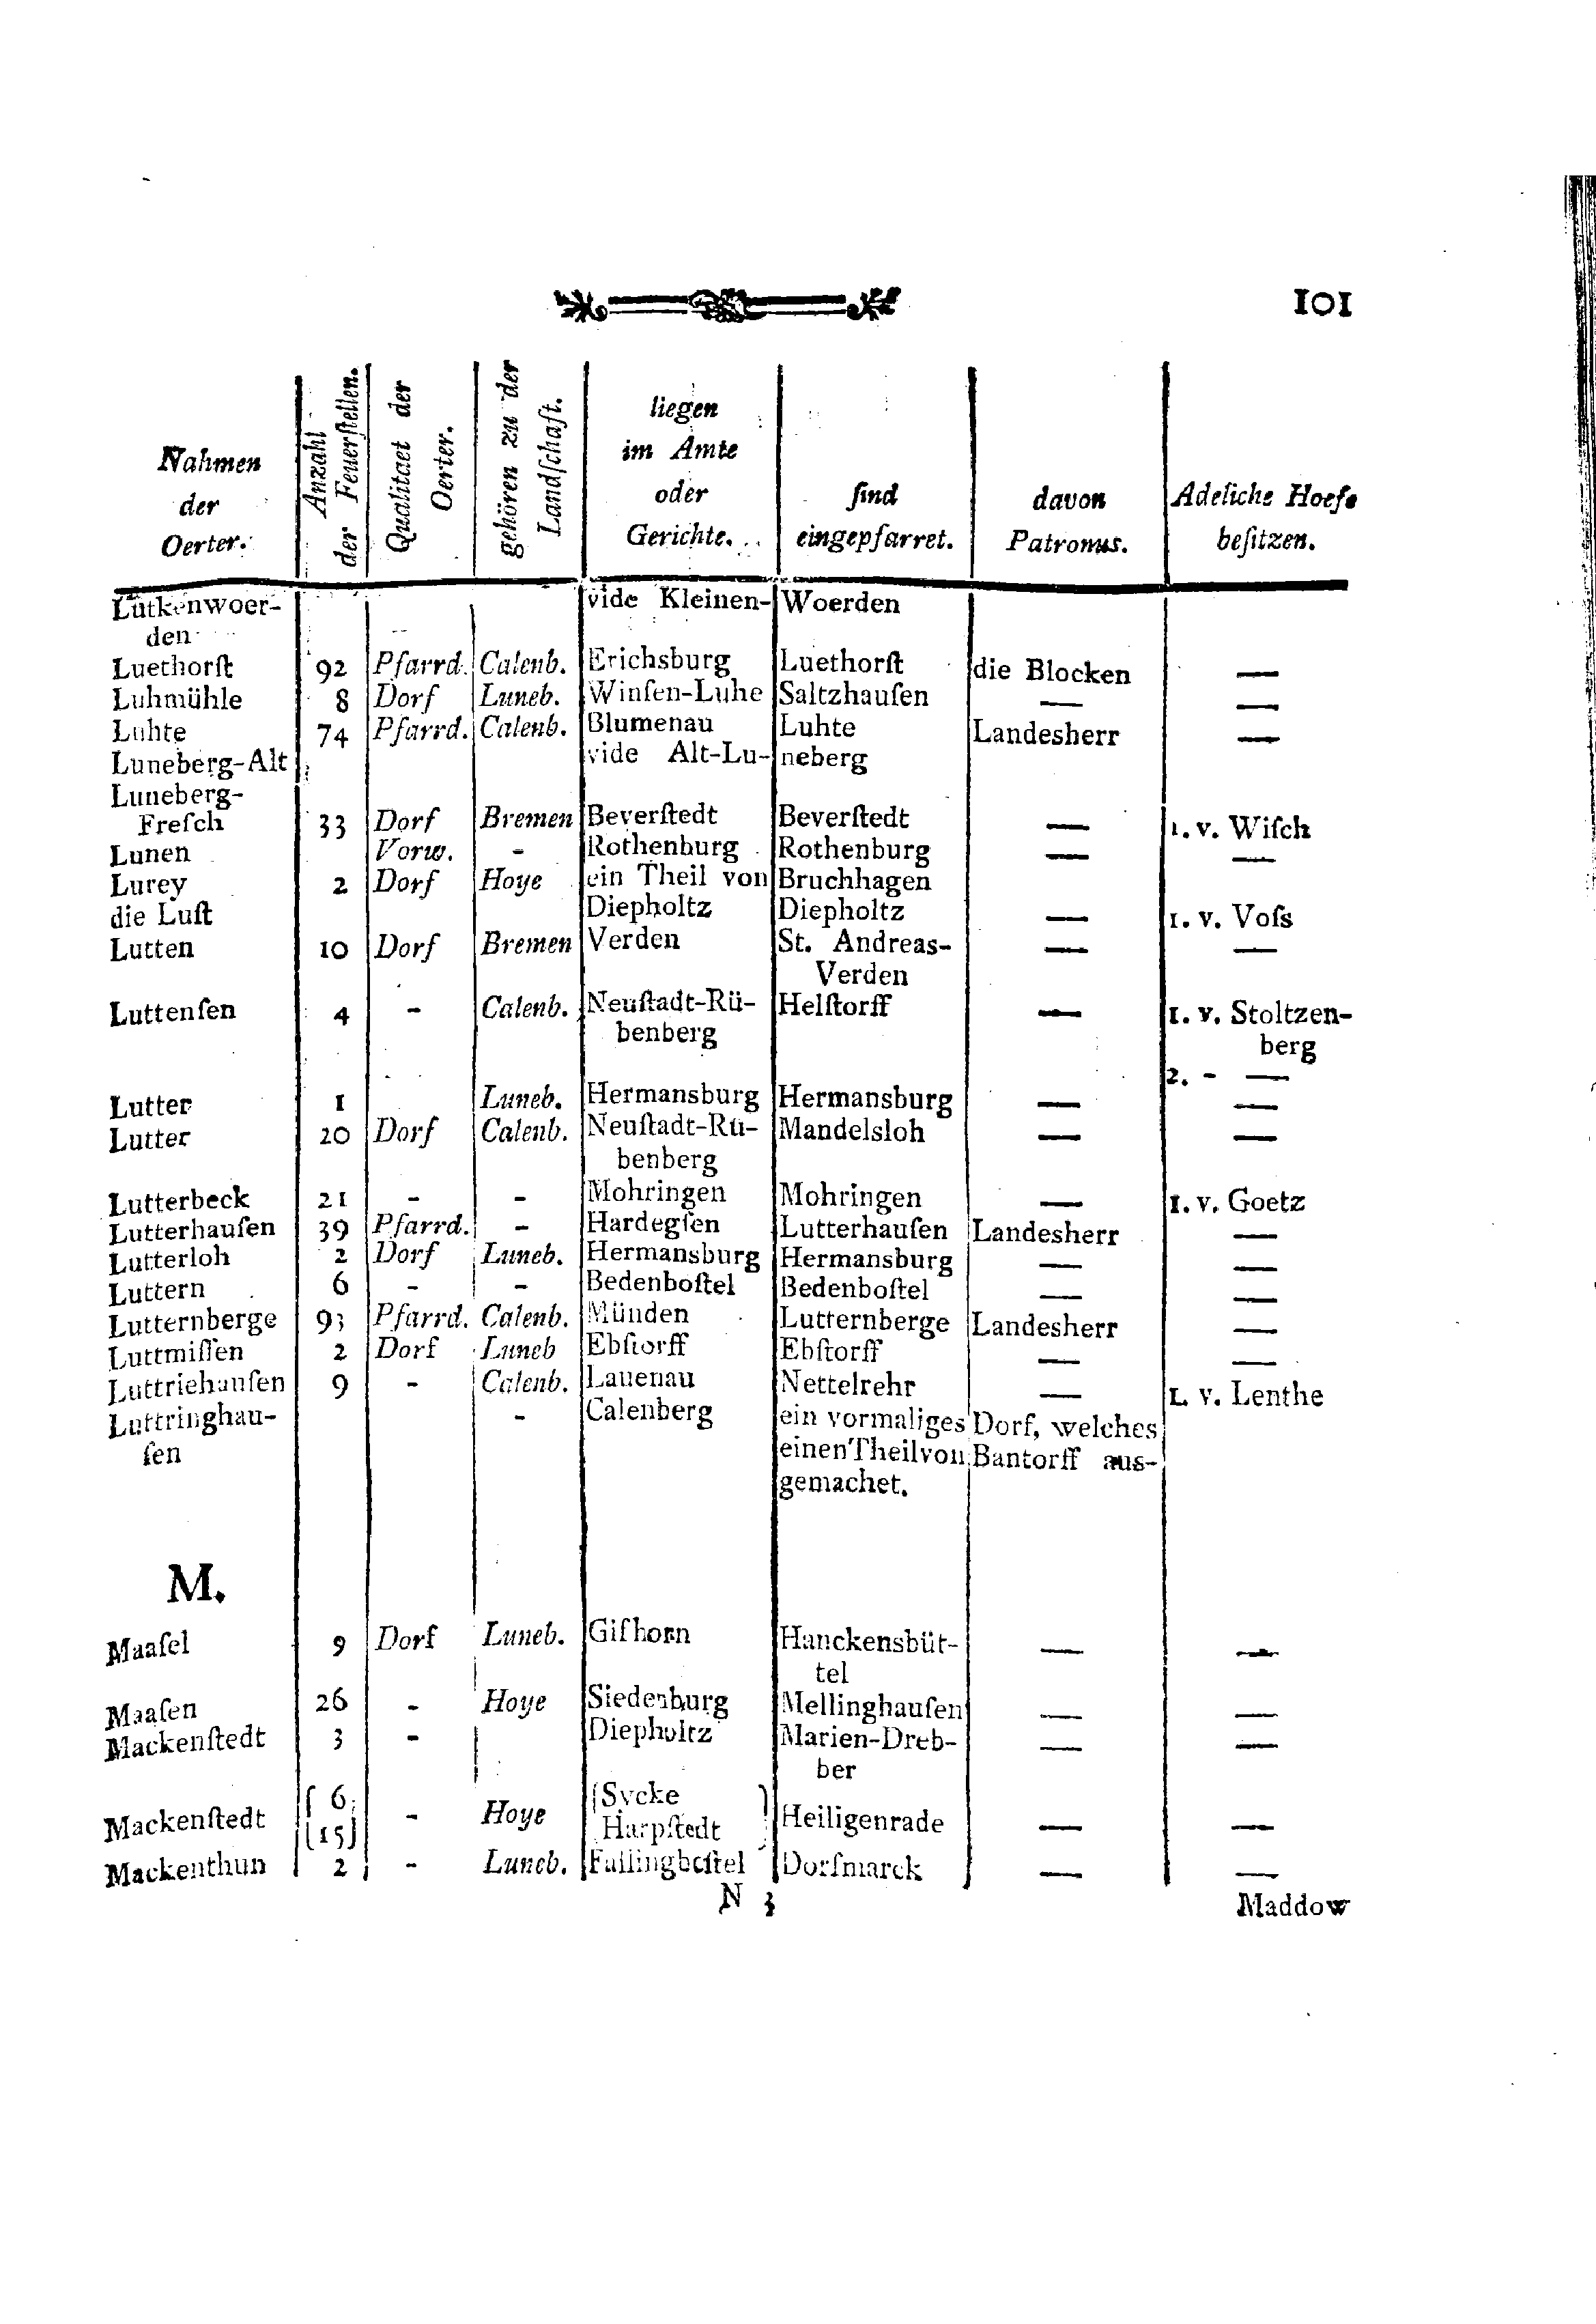 101
Nahmen der Oerter. | Anzahl der Feuerſtellen. | Qualitaet der Oerter. | gehören zu der Landſchaft. | liegen im Amte oder Gerichte. | ſind eingepfarret. | davon Patronus. | Adeliche Hoefe beſitzen.
Lutkenwoer- | vide Kleinen- | Woerden
den
Luethorſt | 92 | Pfarrd. | Calenb. | Erichsburg | Luethorſt | die Blocken | —
Luhmühle | 8 | Dorf | Luneb. | Winſen-Luhe | Saltzhauſen | — | —
Luhte | 74 | Pfarrd. | Calenb. | Blumenau | Luhte | Landesherr | —
Luneberg-Alt | vide Alt-Lu- | neberg
Luneberg-
Freſch | 33 | Dorf | Bremen | Beverſtedt | Beverſtedt | — | 1. v. Wiſch
Lunen | Vorw. | - | Rothenburg | Rothenburg | — | —
Lurey | 2 | Dorf | Hoye | ein Theil von | Bruchhagen
die Luſt | Diepholtz | Diepholtz | — | 1. v. Voſs
Lutten | 10 | Dorf | Bremen | Verden | St. Andreas- | — | —
Verden
Luttenſen | 4 | - | Calenb. | Neuſtadt-Rü- | Helſtorff | — | 1. v. Stoltzen-
benberg | berg
2. - —
Lutter | 1 | Luneb. | Hermansburg | Hermansburg | — | —
Lutter | 20 | Dorf | Calenb. | Neuſtadt-Rü- | Mandelsloh | — | —
benberg
Lutterbeck | 21 | - | - | Mohringen | Mohringen | — | 1. v. Goetz
Lutterhauſen | 39 | Pfarrd. | - | Hardegſen | Lutterhauſen | Landesherr | —
Lutterloh | 2 | Dorf | Luneb. | Hermansburg | Hermansburg | — | —
Luttern | 6 | - | - | Bedenboſtel | Bedenboſtel | — | —
Lutternberge | 93 | Pfarrd. | Calenb. | Münden | Lutternberge | Landesherr | —
Luttmiſſen | 2 | Dorf | Luneb | Ebſtorff | Ebſtorff | — | —
Luttriehauſen | 9 | - | Calenb. | Lauenau | Nettelrehr | — | 1. v. Lenthe
Luttringhau- | - | Calenberg | ein vormaliges | Dorf, welches
ſen | einen Theil von | Bantorff aus-
gemachet.
M.
Maaſel | 9 | Dorf | Luneb. | Gifhorn | Hanckensbüt- | — | —
tel
Maaſen | 26 | - | Hoye | Siedenburg | Mellinghauſen | — | —
Mackenſtedt | 3 | - | Diepholtz | Marien-Dreb- | — | —
ber
Mackenſtedt | 6 | - | Hoye | Sycke | Heiligenrade | — | —
15 | Harpſtedt
Mackenthun | 2 | - | Luneb. | Fallingboſtel | Dorfmarck | — | —
N 3 | Maddow